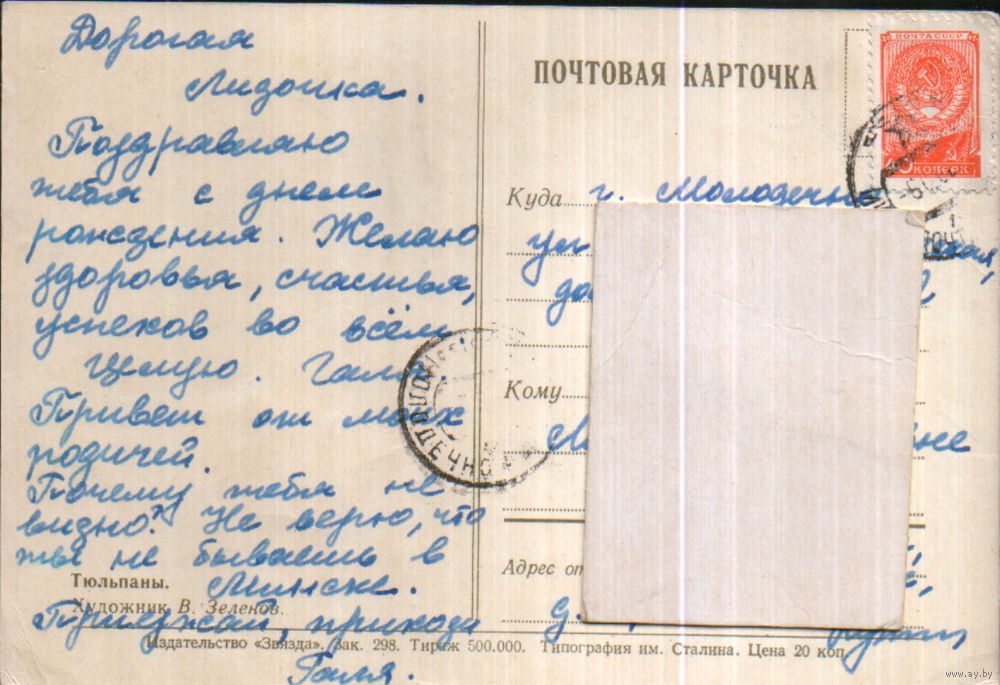 Дорогая
Лидочка.
Поздравляю
тебя с днем
рождения. Желаю
здоровья, счастья,
успехов во всём
Целую. Галя.
Привет от моих
родичей.
Почему тебя не
видно? Не верю, что
ты не бываешь в
Минске.
Приезжай, приходи
Галя.
Тюльпаны.
Художник В. Зеленов.
Издательство «Звязда». Зак. 298. Тираж 500.000. Типография им. Сталина. Цена 20 коп.
ПОЧТОВАЯ КАРТОЧКА
ПОЧТА СССР
КОПЕЕК
Куда г. Молодечно
Кому
Адрес от
www.ay.by